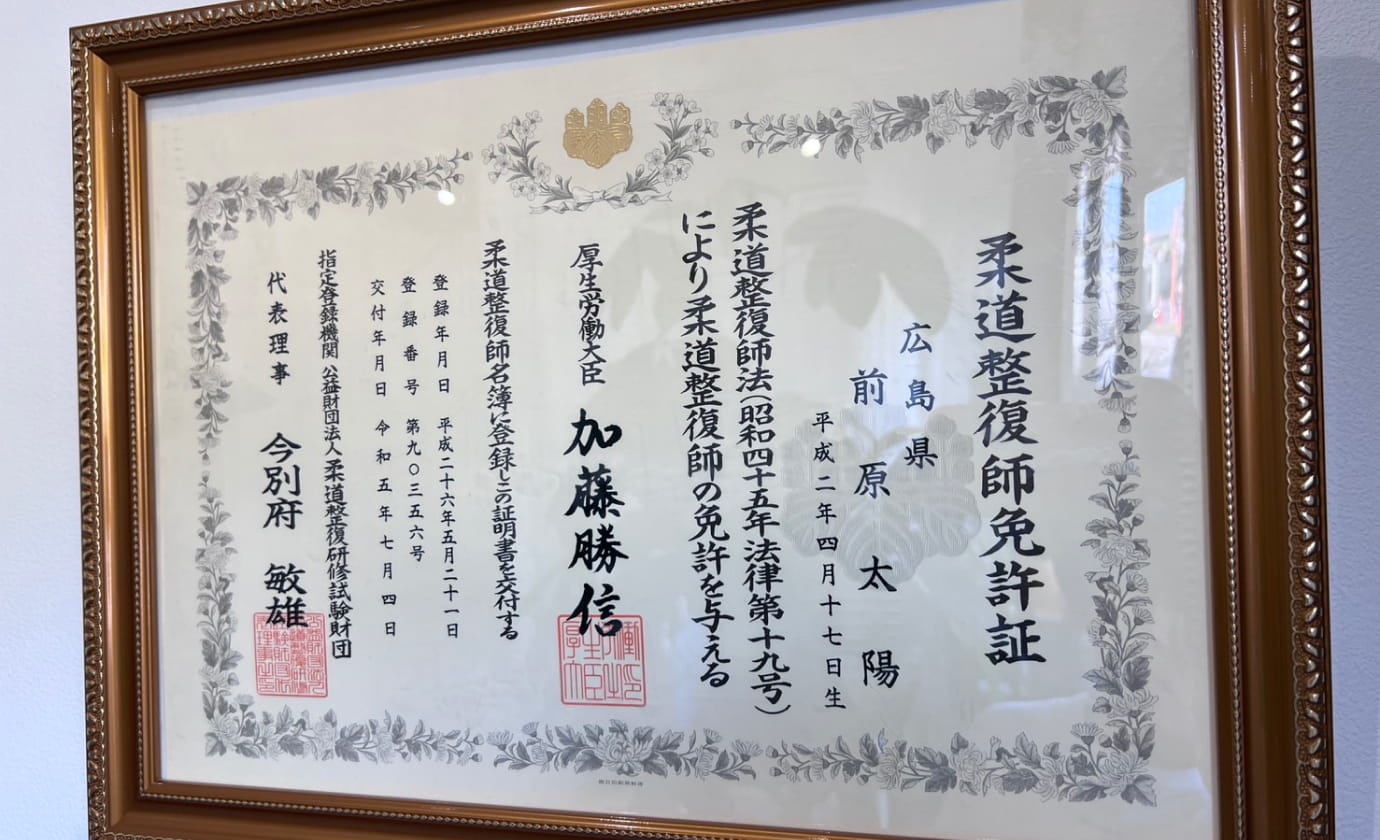 柔道整復師免許証
広島県
前原太陽
平成二年四月十七日生
柔道整復師法(昭和四十五年法律第十九号)
により柔道整復師の免許を与える
厚生労働大臣 加藤勝信
柔道整復師名簿に登録しこの証明書を交付する
登録年月日 平成二十六年五月二十一日
登録番号 第九〇三五六号
交付年月日 令和五年七月四日
指定登録機関 公益財団法人 柔道整復研修試験財団
代表理事 今別府 敏雄